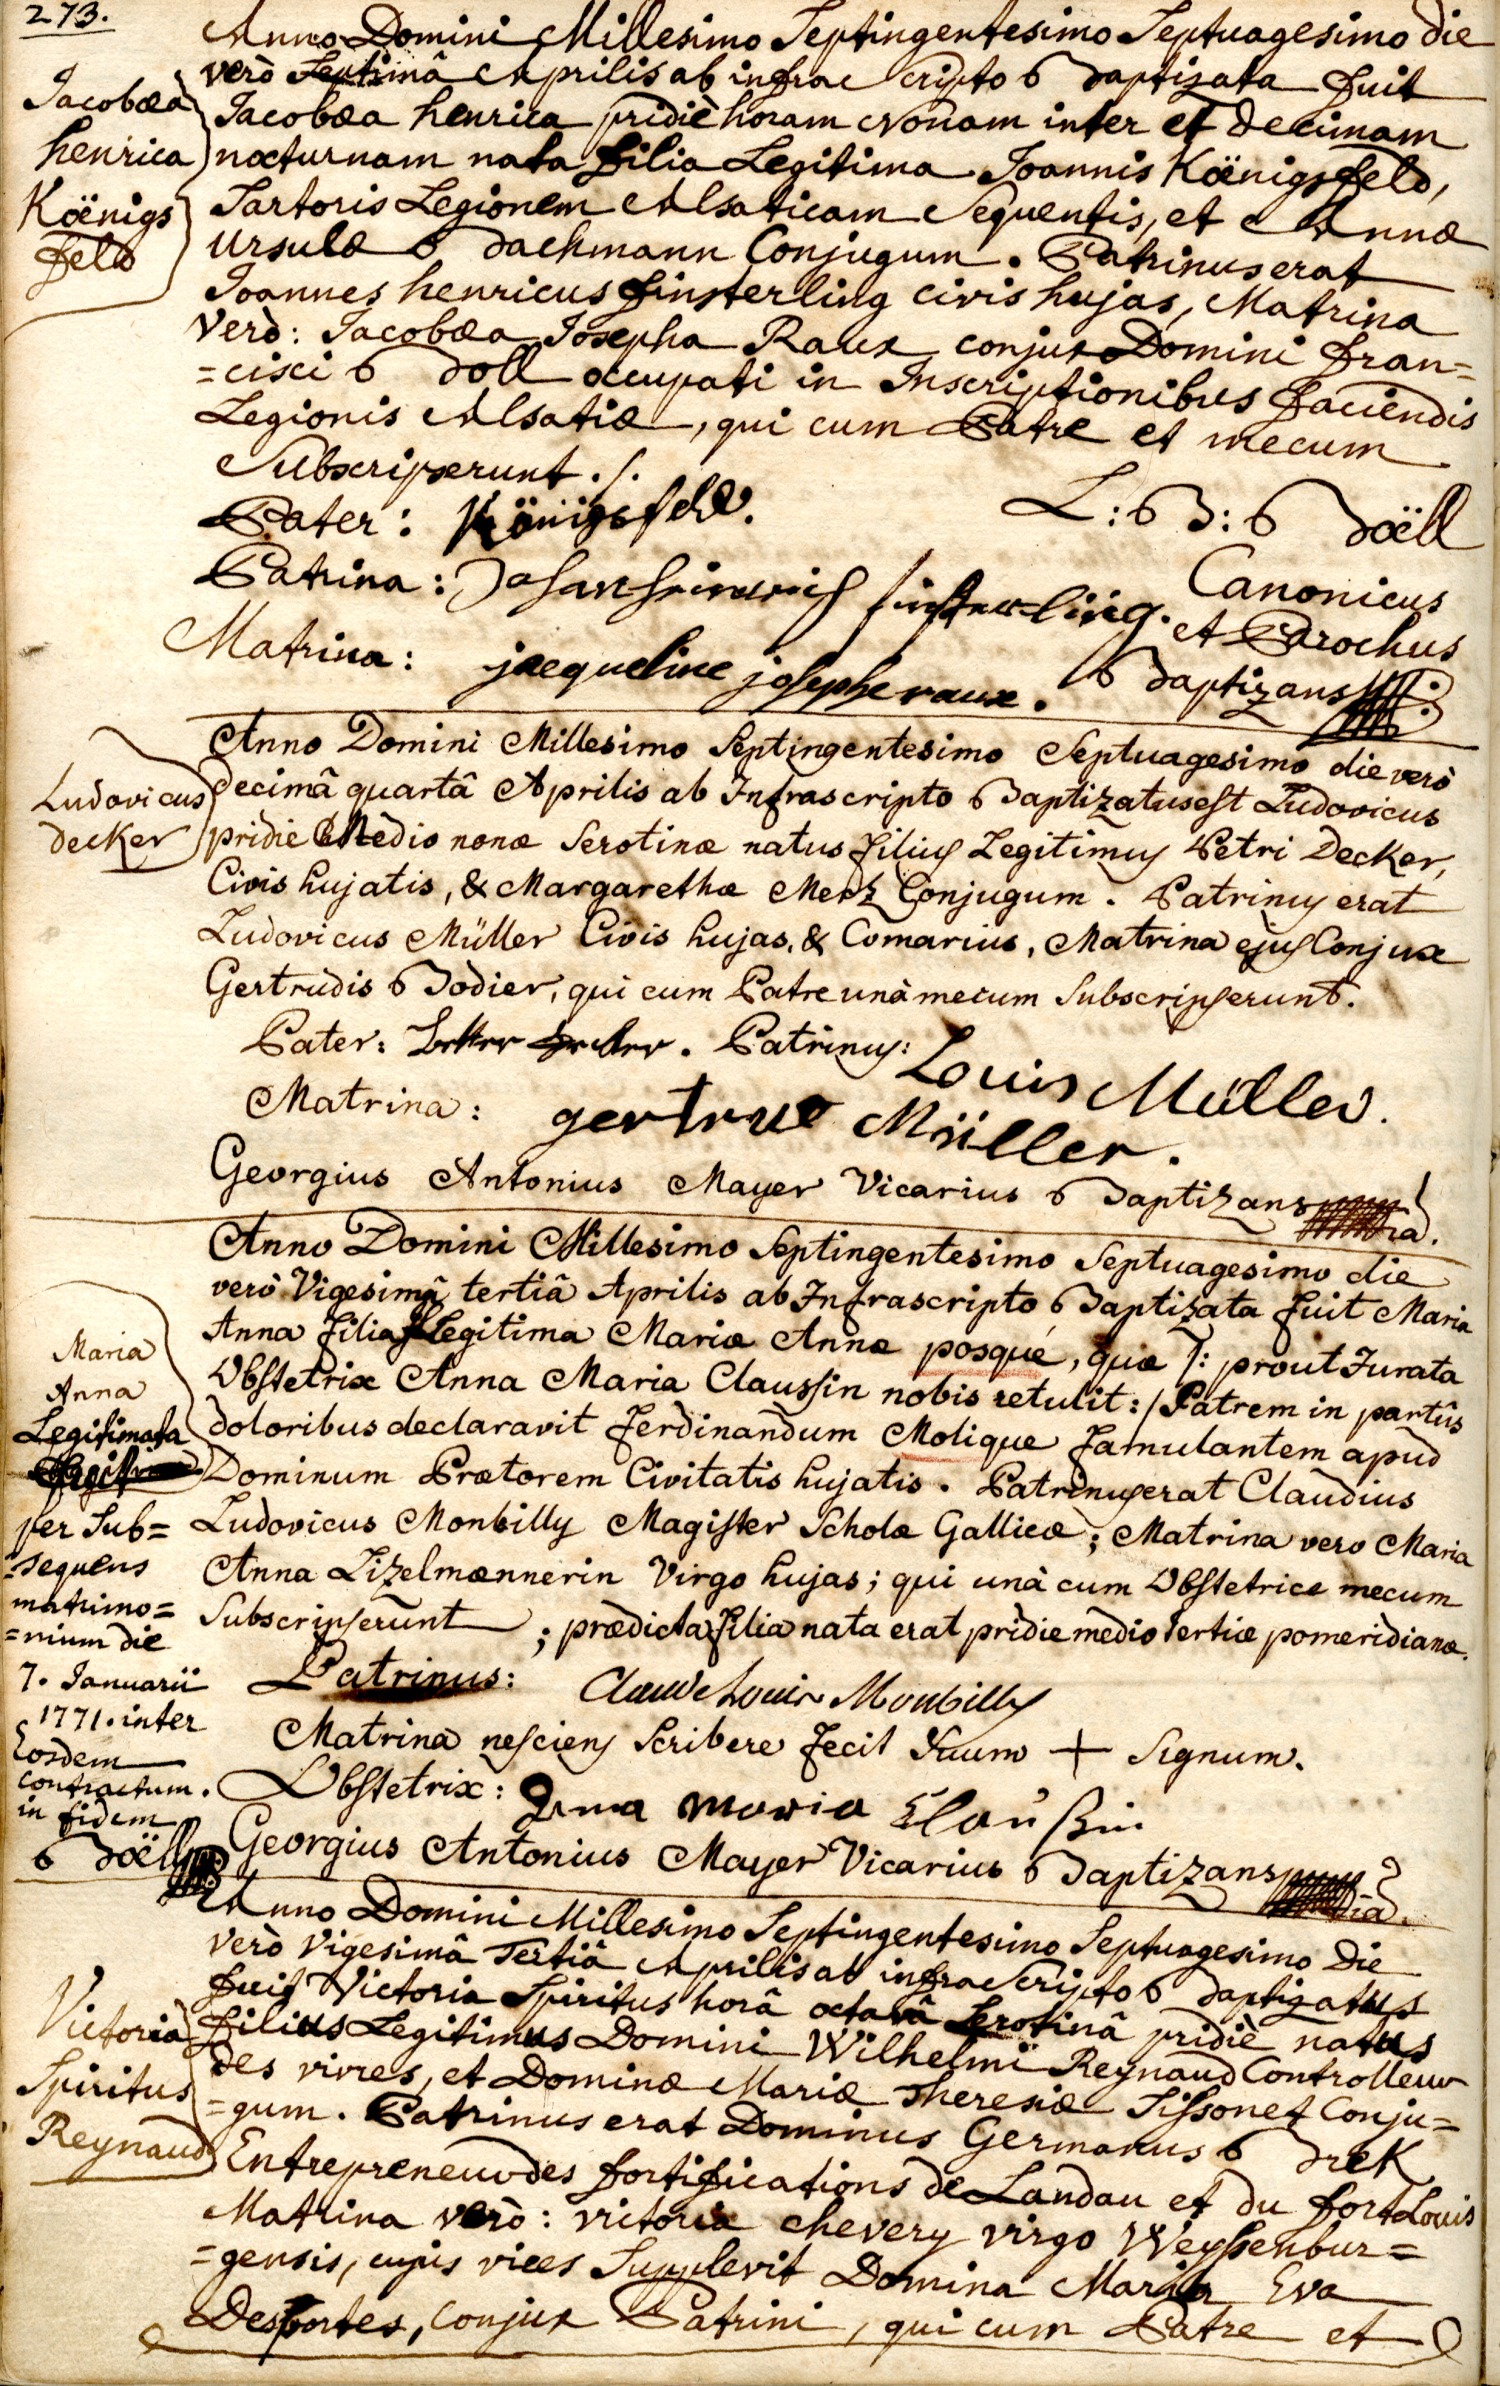 273.
Jacobæa
henrica
Köenigs
feld
Anno Domini Millesimo Septingentesimo Septuagesimo die
verò Septimâ Aprilis ab infrascripto Baptizata fuit
Jacobæa henrica pridiè horam Nonam inter et decimam
nocturnam nata filia Legitima Joannis Köenigsfeld,
Sartoris Legionem Alsaticam Sequentis, et Annæ
Ursulæ Bachmann Conjugum. Patrinus erat
Joannes henricus finsterling civis hujas, Matrina
Verò: Jacobæa Josepha Raux conjux Domini fran=
=cisci Boll occupati in Inscriptionibus faciendis
Legionis Alsatiæ, qui cum Patre et mecum
Subscripserunt ./.
Pater: Königsfeld.
L: B: Boëll
Patrina: Johan Heinrich finsterling.
Canonicus
et Parochus
Matrina: jacqueline josephe raux.
Baptizans
Ludovicus
decker
Anno Domini Millesimo Septingentesimo Septuagesimo die verò
Decimâ quartâ Aprilis ab Infrascripto Baptizatus est Ludovicus
pridie Medio nonæ Serotinæ natus filius Legitimus Petri Decker,
Civis hujatis, & Margarethæ Merz Conjugum. Patrinus erat
Ludovicus Müller Civis hujas, & Comarius, Matrina ejus Conjux
Gertrudis Bodier, qui cum Patre unà mecum Subscripserunt.
Pater: Patrinus: Louis Müller.
Matrina: gertrud Müller.
Georgius Antonius Mayer Vicarius Baptizans
Maria
Anna
Legitimata
per Sub=
=sequens
matrimo=
=nium die
7. Januarii
1771. inter
Eosdem
contractum.
in fidem
Boëll
Anno Domini Millesimo Septingentesimo Septuagesimo die
verò Vigesimâ tertiâ Aprilis ab Infrascripto Baptizata fuit Maria
Anna filia Legitima Mariæ Annæ posqué, quæ /: prout Jurata
Obstetrix Anna Maria Claussin nobis retulit :/ Patrem in partûs
doloribus declaravit Ferdinandum Molique Famulantem apud
Dominum Prætorem Civitatis hujatis. Patrinus erat Claudius
Ludovicus Monbilly Magister Scholæ Gallicæ; Matrina vero Maria
Anna Lizelmænnerin Virgo hujas; qui unà cum Obstetrice mecum
Subscripserunt; prædicta filia nata erat pridie medio tertiæ pomeridianæ.
Patrinus: Claude Louis Monbilly
Matrina nesciens Scribere fecit Suum + Signum.
Obstetrix: Anna maria Claußin
Georgius Antonius Mayer Vicarius Baptizans
Victoria
Spiritus
Reynaud
Anno Domini Millesimo Septingentesimo Septuagesimo Die
Verò Vigesimâ Tertiâ Aprilis ab infrascripto Baptizatus
fuit Victoria Spiritus horâ octavâ Serotinâ pridiè natus
filius Legitimus Domini Wilhelmi Reynaud Controlleur
des vivres, et Dominæ Mariæ Theresiæ Tissonet Conju=
=gum. Patrinus erat Dominus Germanus Brek
Entrepreneur des fortifications de Landau et du fort Louis
Matrina verò: victoria chevery virgo Weyssenbur=
=gensis, cujus vices Supplevit Domina Maria Eva
Desportes, conjux Patrini, qui cum Patre et